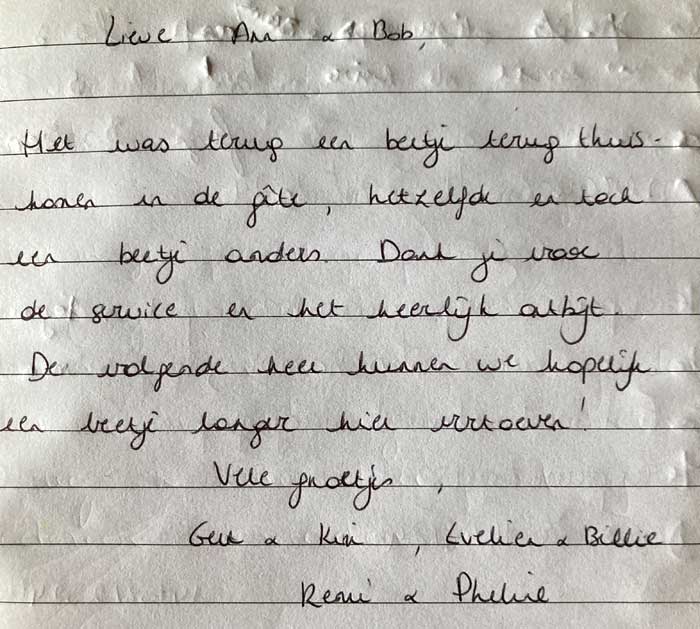 Lieve Ann & Bob,
Het was terug een beetje terug thuis-
komen in de gîte, hetzelfde en toch
een beetje anders. Dank je voor
de service en het heerlijk ontbijt.
De volgende keer kunnen we hopelijk
een beetje langer hier vertoeven!
Vele groetjes,
& Kim, Evelien & Billie
Remi &